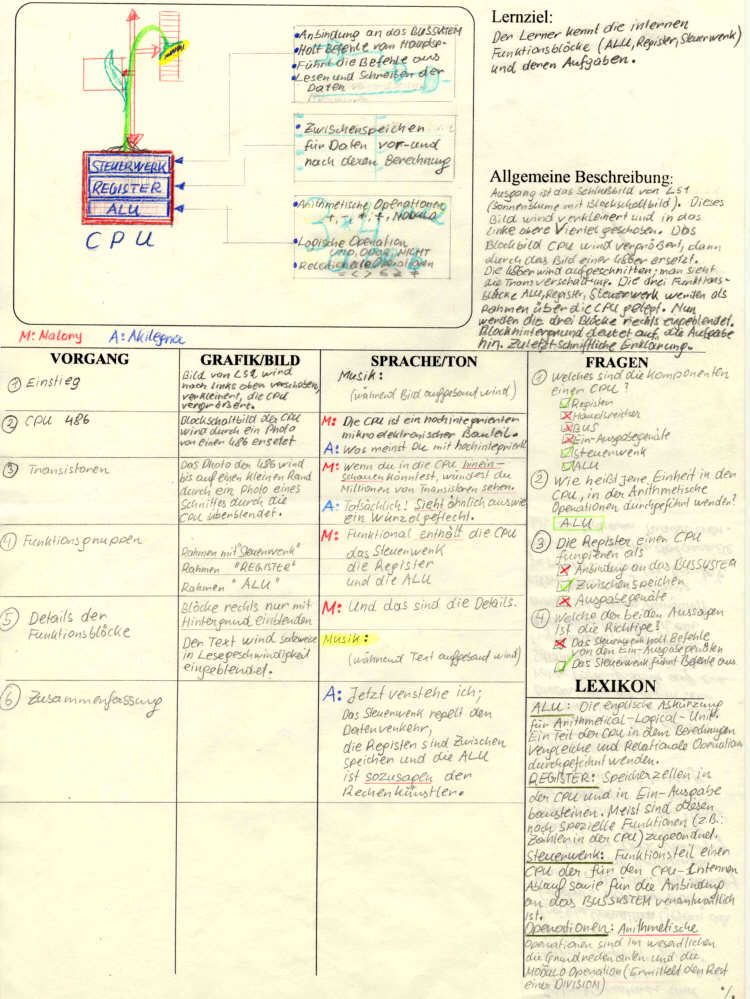 • Anbindung an das BUSSYSTEM
• Holt Befehle vom Hauptsp.
• Führt die Befehle aus
• Lesen und Schreiben der
Daten
• Zwischenspeicher
für Daten vor- und
nach deren Berechnung
• Arithmetische Operationen
• Logische Operation
UND, ODER, NICHT
• Relationale Operationen
STEUERWERK
REGISTER
ALU
CPU
M: Malony A: Akilegna
Lernziel:
Der Lerner kennt die internen
Funktionsblöcke (ALU, Register, Steuerwerk)
und deren Aufgaben.
Allgemeine Beschreibung:
Ausgang ist das Schlußbild von LS1
(Sonnenblume mit Blockschaltbild). Dieses
Bild wird verkleinert und in das
linke obere Viertel geschoben. Das
Blockbild CPU wird vergrößert, dann
durch das Bild einer 486er ersetzt.
Die 486er wird aufgeschnitten; man sieht
die Transverschaltung. Die drei Funktions-
blöcke ALU, Register, Steuerwerk werden als
Rahmen über die CPU gelegt. Nun
werden die drei Blöcke rechts eingeblendet.
Blockhintergrund deutet auf die Aufgabe
hin. Zuletzt schriftliche Erklärung.
VORGANG
① Einstieg
② CPU 486
③ Transistoren
④ Funktionsgruppen
⑤ Details der
Funktionsblöcke
⑥ Zusammenfassung
GRAFIK/BILD
Bild von LS1 wird
nach links oben verschoben,
verkleinert, die CPU
vergrößert.
Blockschaltbild der CPU
wird durch ein Photo
von einer 486 ersetzt
Das Photo der 486 wird
bis auf einen kleinen Rand
durch ein Photo eines
Schnittes durch die
CPU überblendet.
Rahmen mit "Steuerwerk"
Rahmen "REGISTER"
Rahmen "ALU"
Blöcke rechts nur mit
Hintergrund einblenden
Der Text wird satzweise
in Lesegeschwindigkeit
eingeblendet.
SPRACHE/TON
Musik:
(während Bild aufgebaut wird)
M: Die CPU ist ein hochintegrierter
mikroelektronischer Bauteil.
A: Was meinst Du mit hochintegriert?
M: Wenn du in die CPU hinein-
schauen könntest, würdest du
Millionen von Transistoren sehen.
A: Tatsächlich! Sieht ähnlich aus wie
ein Wurzelgeflecht.
M: Funktional enthält die CPU
das Steuerwerk
die Register
und die ALU
M: Und das sind die Details.
Musik:
(während Text aufgebaut wird)
A: Jetzt verstehe ich;
Das Steuerwerk regelt den
Datenverkehr,
die Register sind Zwischen
speicher und die ALU
ist sozusagen der
Rechenkünstler.
FRAGEN
① Welches sind die Komponenten
einer CPU?
Register
Hauptspeicher
BUS
Ein-Ausgabegeräte
Steuerwerk
ALU
② Wie heißt jene Einheit in der
CPU, in der Arithmetische
Operationen durchgeführt werden?
ALU
③ Die Register einer CPU
fungieren als
Anbindung an das BUSSYSTEM
Zwischenspeicher
Ausgabegeräte
④ Welche der beiden Aussagen
ist die Richtige?
Das Steuerwerk holt Befehle
von den Ein-Ausgabegeräten
Das Steuerwerk führt Befehle aus.
LEXIKON
ALU: Die englische Abkürzung
für Arithmetical-Logical-Unit.
Ein Teil der CPU in dem Berechnungen
Vergleiche und Relationale Operation
durchgeführt werden.
REGISTER: Speicherzellen in
der CPU und in Ein-Ausgabe
bausteinen. Meist sind diesen
noch spezielle Funktionen (z.B.:
Zähler in der CPU) zugeordnet.
Steuerwerk: Funktionsteil einer
CPU der für den CPU-Internen
Ablauf sowie für die Anbindung
an das BUSSYSTEM verantwortlich
ist.
Operationen: Arithmetische
Operationen sind im wesentlichen
die Grundrechenarten und die
MODULO Operation (Ermittelt den Rest
einer DIVISION)